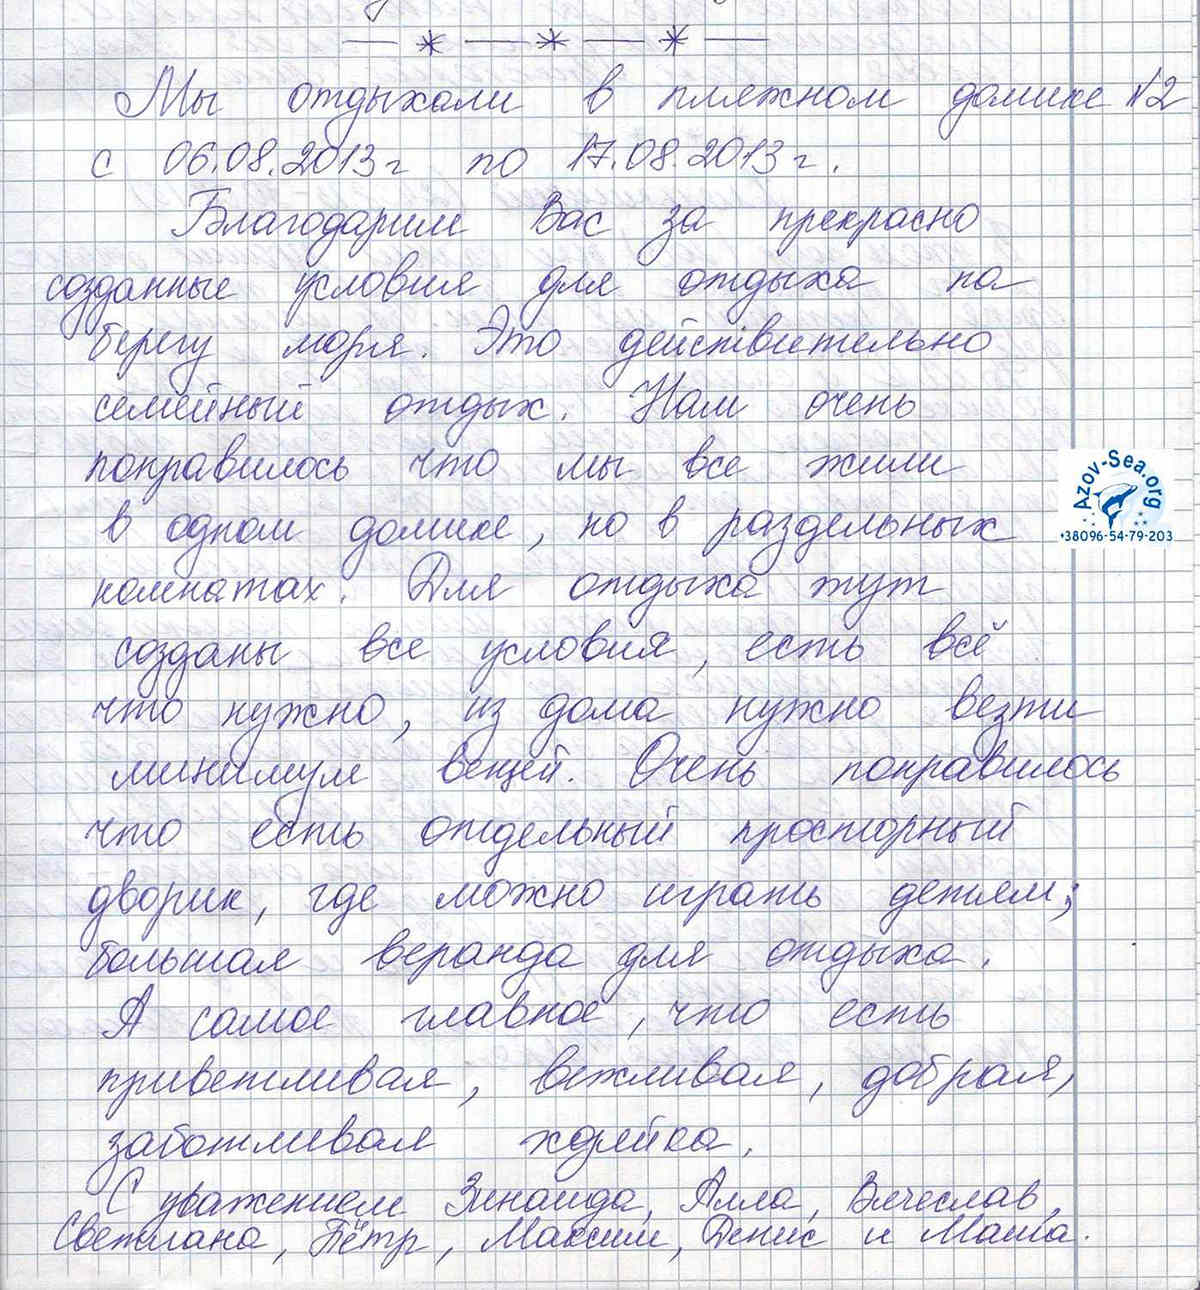 Мы отдыхали в пляжном домике №2
с 06.08.2013г по 17.08.2013г.
Благодарим Вас за прекрасно
созданные условия для отдыха на
берегу моря. Это действительно
семейный отдых. Нам очень
понравилось что мы все жили
в одном домике, но в раздельных
комнатах. Для отдыха тут
созданы все условия, есть всё
что нужно, из дома нужно везти
минимум вещей. Очень понравилось
что есть отдельный просторный
дворик, где можно играть детям;
большая веранда для отдыха.
А самое главное, что есть
приветливая, вежливая, добрая,
заботливая хозяйка.
С уважением Зинаида, Алла, Вячеслав,
Светлана, Пётр, Максим, Денис и Маша.
Azov-Sea.org
+38096-54-79-203